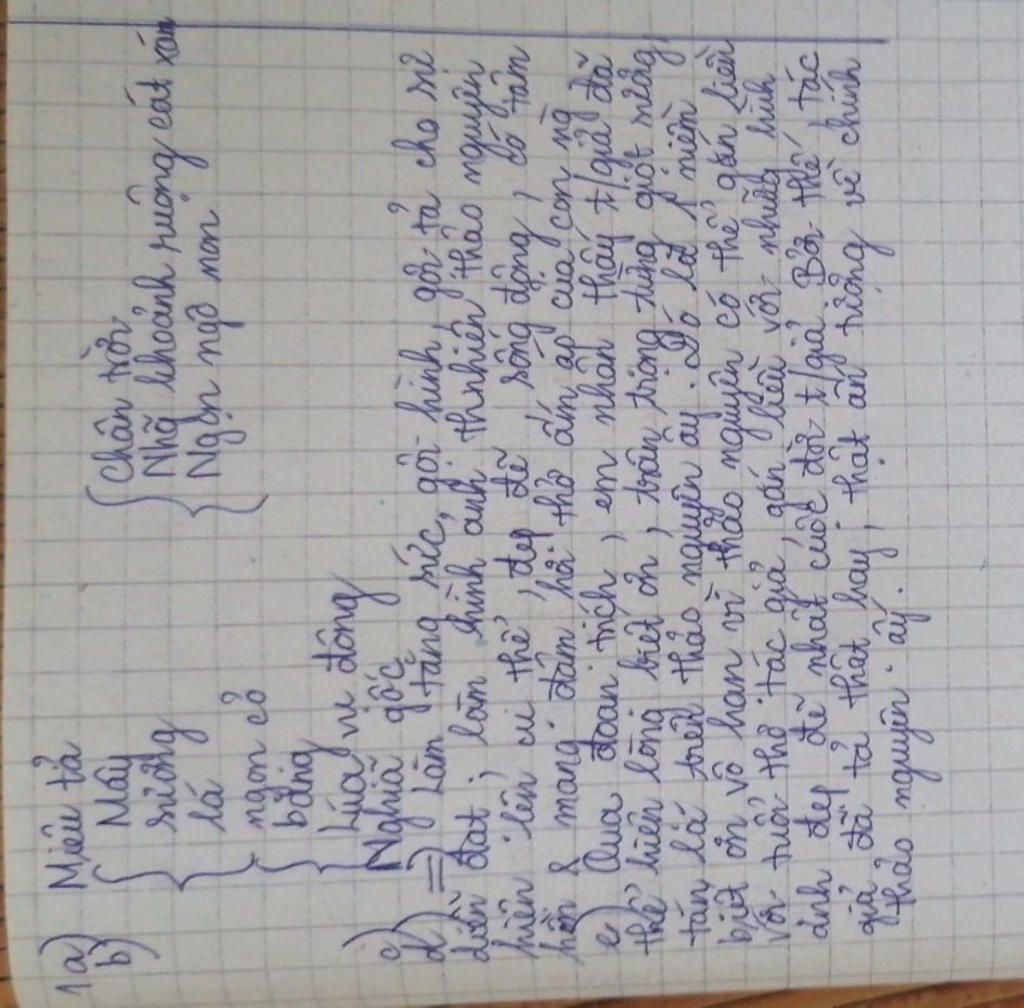 1a) Miêu tả
b) Mây Chân trời
sương Nhữ khoảnh ruộng cát xám
lá Ngọn ngô non
ngọn cỏ
bông
Lúa vụ đông
c) Nghĩa gốc
d) => Làm tăng sức gợi hình, gợi tả cho sự
diễn đạt; làm hình ảnh thnhiên thảo nguyên
hiện lên cụ thể, đẹp đẽ sống động, có tâm
hồn & mang đậm hơi thở ấm áp của con ng
e) Qua đoạn trích, em nhận thấy t/giả đã
thể hiện lòng biết ơn, trân trọng từng giọt nắng,
tán lá trên thảo nguyên ấy. Đó là 1 niềm
biết ơn vô hạn vì thảo nguyên có thể gắn liền
với tuổi thơ tác giả, gắn liền với những hình
ảnh đẹp đẽ nhất cuộc đời t/giả. Bởi thế, tác
giả đã tả thật hay, thật ấn tượng về chính
thảo nguyên ấy.